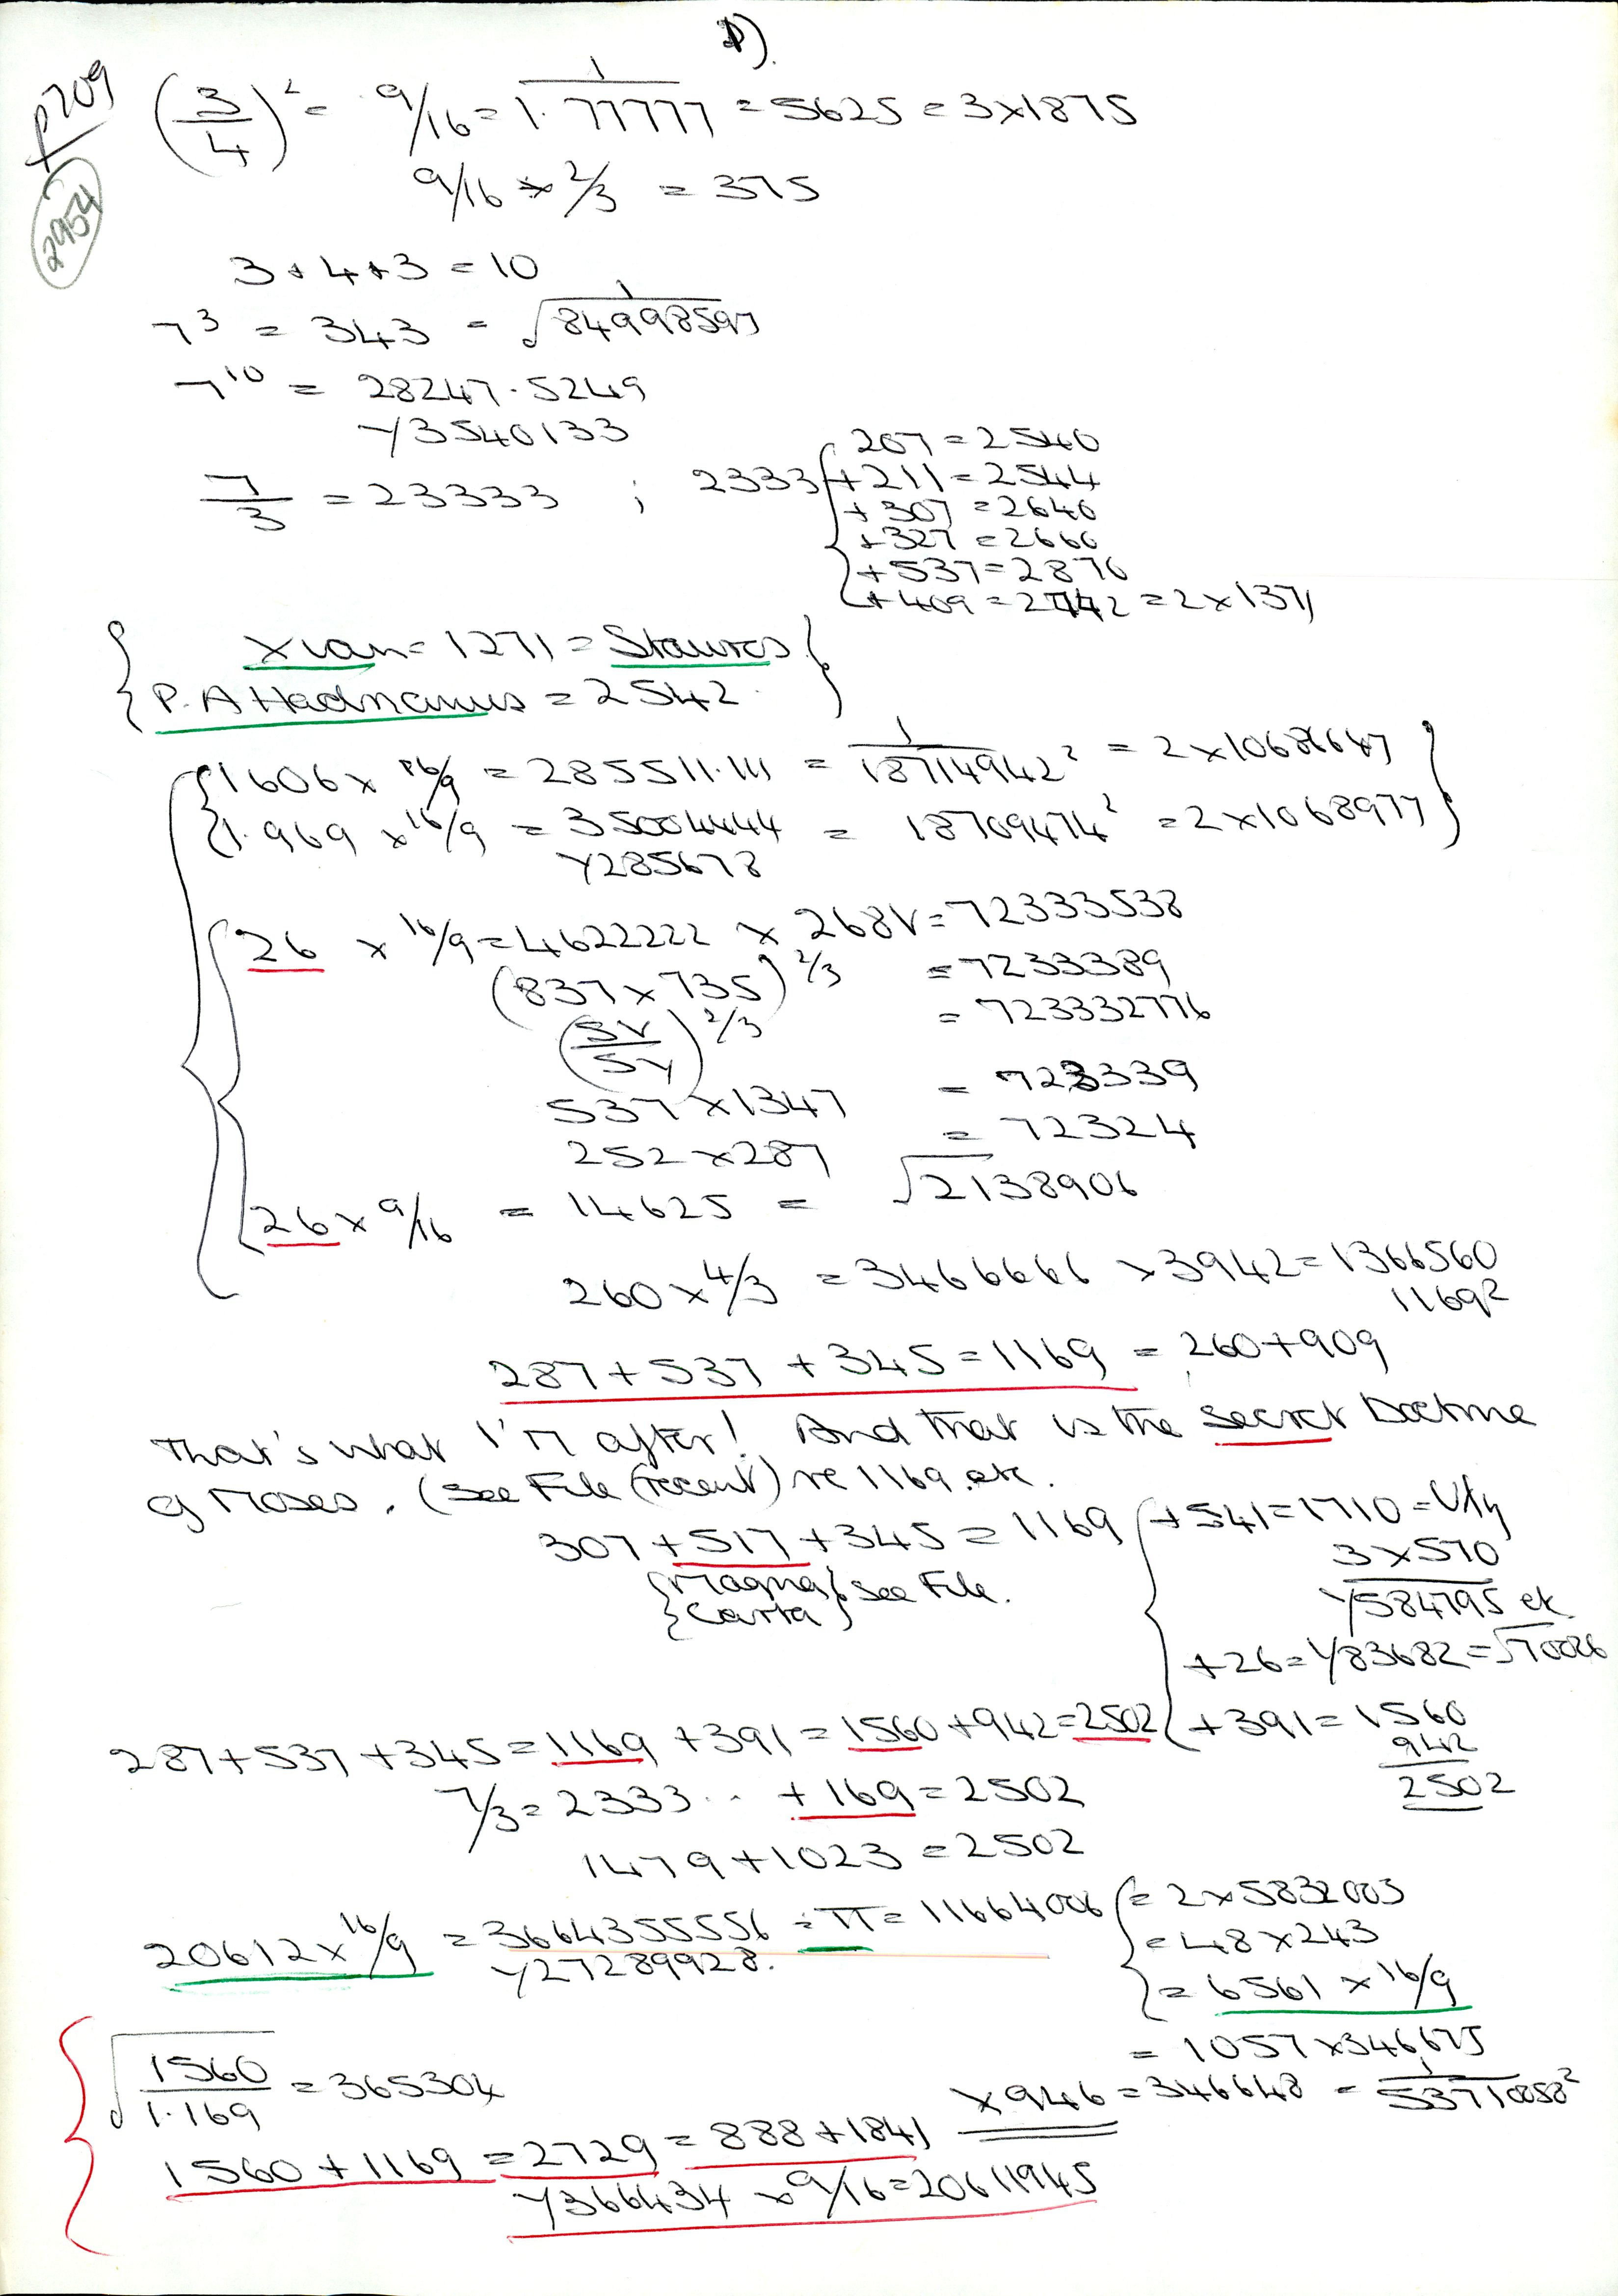 1).
p209
2954
(3/4)² = 9/16 = 1/1.77777 = 5625 = 3x1875
9/16 x 2/3 = 375
3+4+3 = 10
7³ = 343 = 1/√84998597
7¹⁰ = 28247.5249
Y3540133
7/3 = 23333 ; 2333 { 207 = 2540
+211 = 2544
+307 = 2640
+327 = 2660
+537 = 2870
+409 = 2742 = 2x1371
{ Xian = 1271 = Stauros }
{ P. A Hadrianus = 2542 }
1606 x 16/9 = 285511.111 = 1/18714942² = 2x10686647
1.969 x 16/9 = 35004444 = 18709474² = 2x1068977
Y285678
26 x 16/9 = 4622222 x 268V = 72333538
(837x735)^2/3 = 7233389
(5V/5Y)^2/3 = 723332776
537x1347 = 723339
252x287 = 72324
26 x 9/16 = 14625 = √2138906
260 x 4/3 = 3466666 x 3942 = 1366560
1169²
287+537+345 = 1169 = 260+909
That's what I'm after! And that is the secret Doctrine
of Moses. (See File (recent) re 1169 etc.
307+517+345 = 1169 { +541 = 1710 = V/Y
{Magna Carta} see File.
3x570
Y584795 etc
+26 = Y83682 = √70026
+391 = 1560
942
2502
287+537+345 = 1169 +391 = 1560+942 = 2502
7/3 = 2333.. +169 = 2502
1479+1023 = 2502
20612 x 16/9 = 3664355556 ÷ π = 11664006 { = 2x5832003
Y27289928.
= 48x243
= 6561 x 16/9
= 1057x346675
√1560/1.169 = 365304
x946 = 346648 = 1/53710858²
1560+1169 = 2729 = 888+1841
Y366434 x 9/16 = 20611945